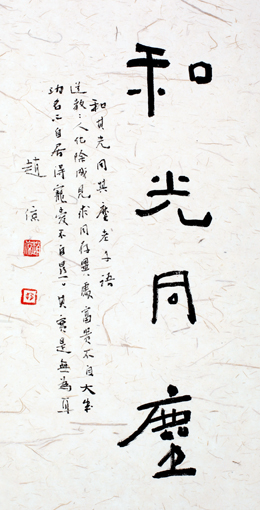 和光同塵
和其光同其塵老子語
道教之人化除成見求同存異處富貴不自大
功名不自居得寵愛不自異其實是無為
趙